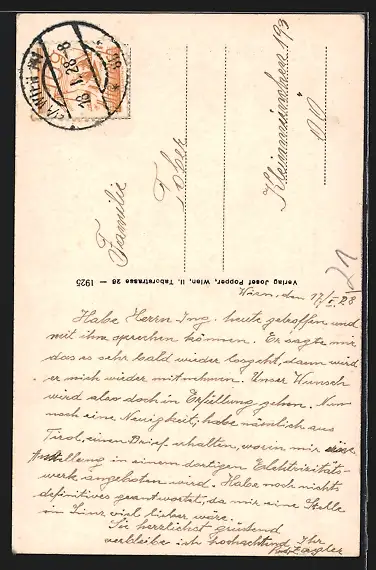 18.I.28 8
Familie
Tober
Kleinmünchen 193
OÖ
21
Verlag Josef Popper, Wien, II. Taborstrasse 26 — 1925
Wien, den 17/I. 28
Habe Herrn Ing. heute getroffen und
mit ihm sprechen können. Er sagte mir
das es sehr bald wieder losgeht, dann wird
er mich wieder mitnehmen. Unser Wunsch
wird also doch in Erfüllung gehen. Nun
noch eine Neuigkeit, habe nämlich aus
Tirol, einen Brief erhalten, worin mir eine
Anstellung in einem dortigen Elektrizitäts-
werk angeboten wird. Habe noch nichts
definitives geantwortet, da mir eine Stelle
in Linz viel lieber wäre.
Sie herzlichst grüssend
verbleibe ich hochachtend Ihr